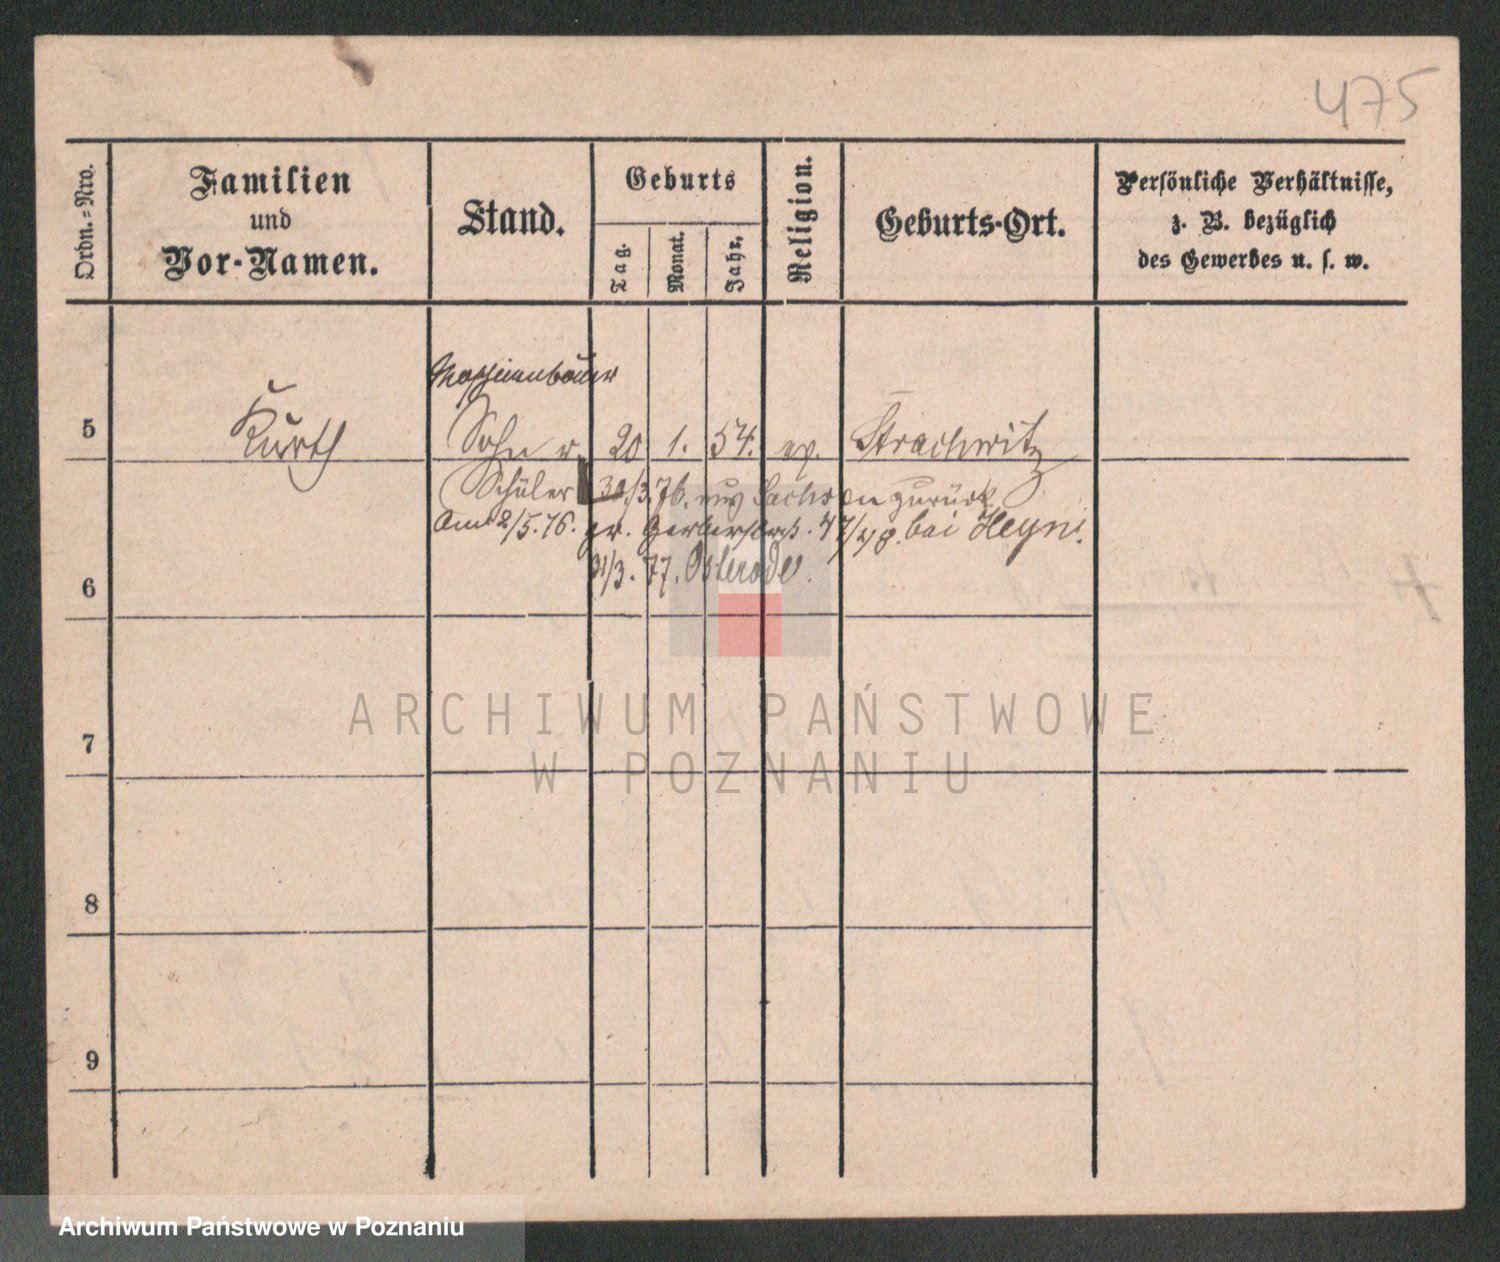 475
Ordn.-Nro.
Familien
und
Vor-Namen.
Stand.
Geburts
Tag.
Monat.
Jahr.
Religion.
Geburts-Ort.
Persönliche Verhältnisse,
z. B. bezüglich
des Gewerbes u. s. w.
Maschienenbauer
5 Kurth Sohn u. 20 1. 54. ev. Strachwitz
Schüler 30/3.76. aus Sachsen zurück
Am 2/5.76. gr. Gerberstrß. 47/48. bei Heyn.
6
31/3. 77. Osterode.
7
8
9
ARCHIWUM PAŃSTWOWE
W POZNANIU
Archiwum Państwowe w Poznaniu